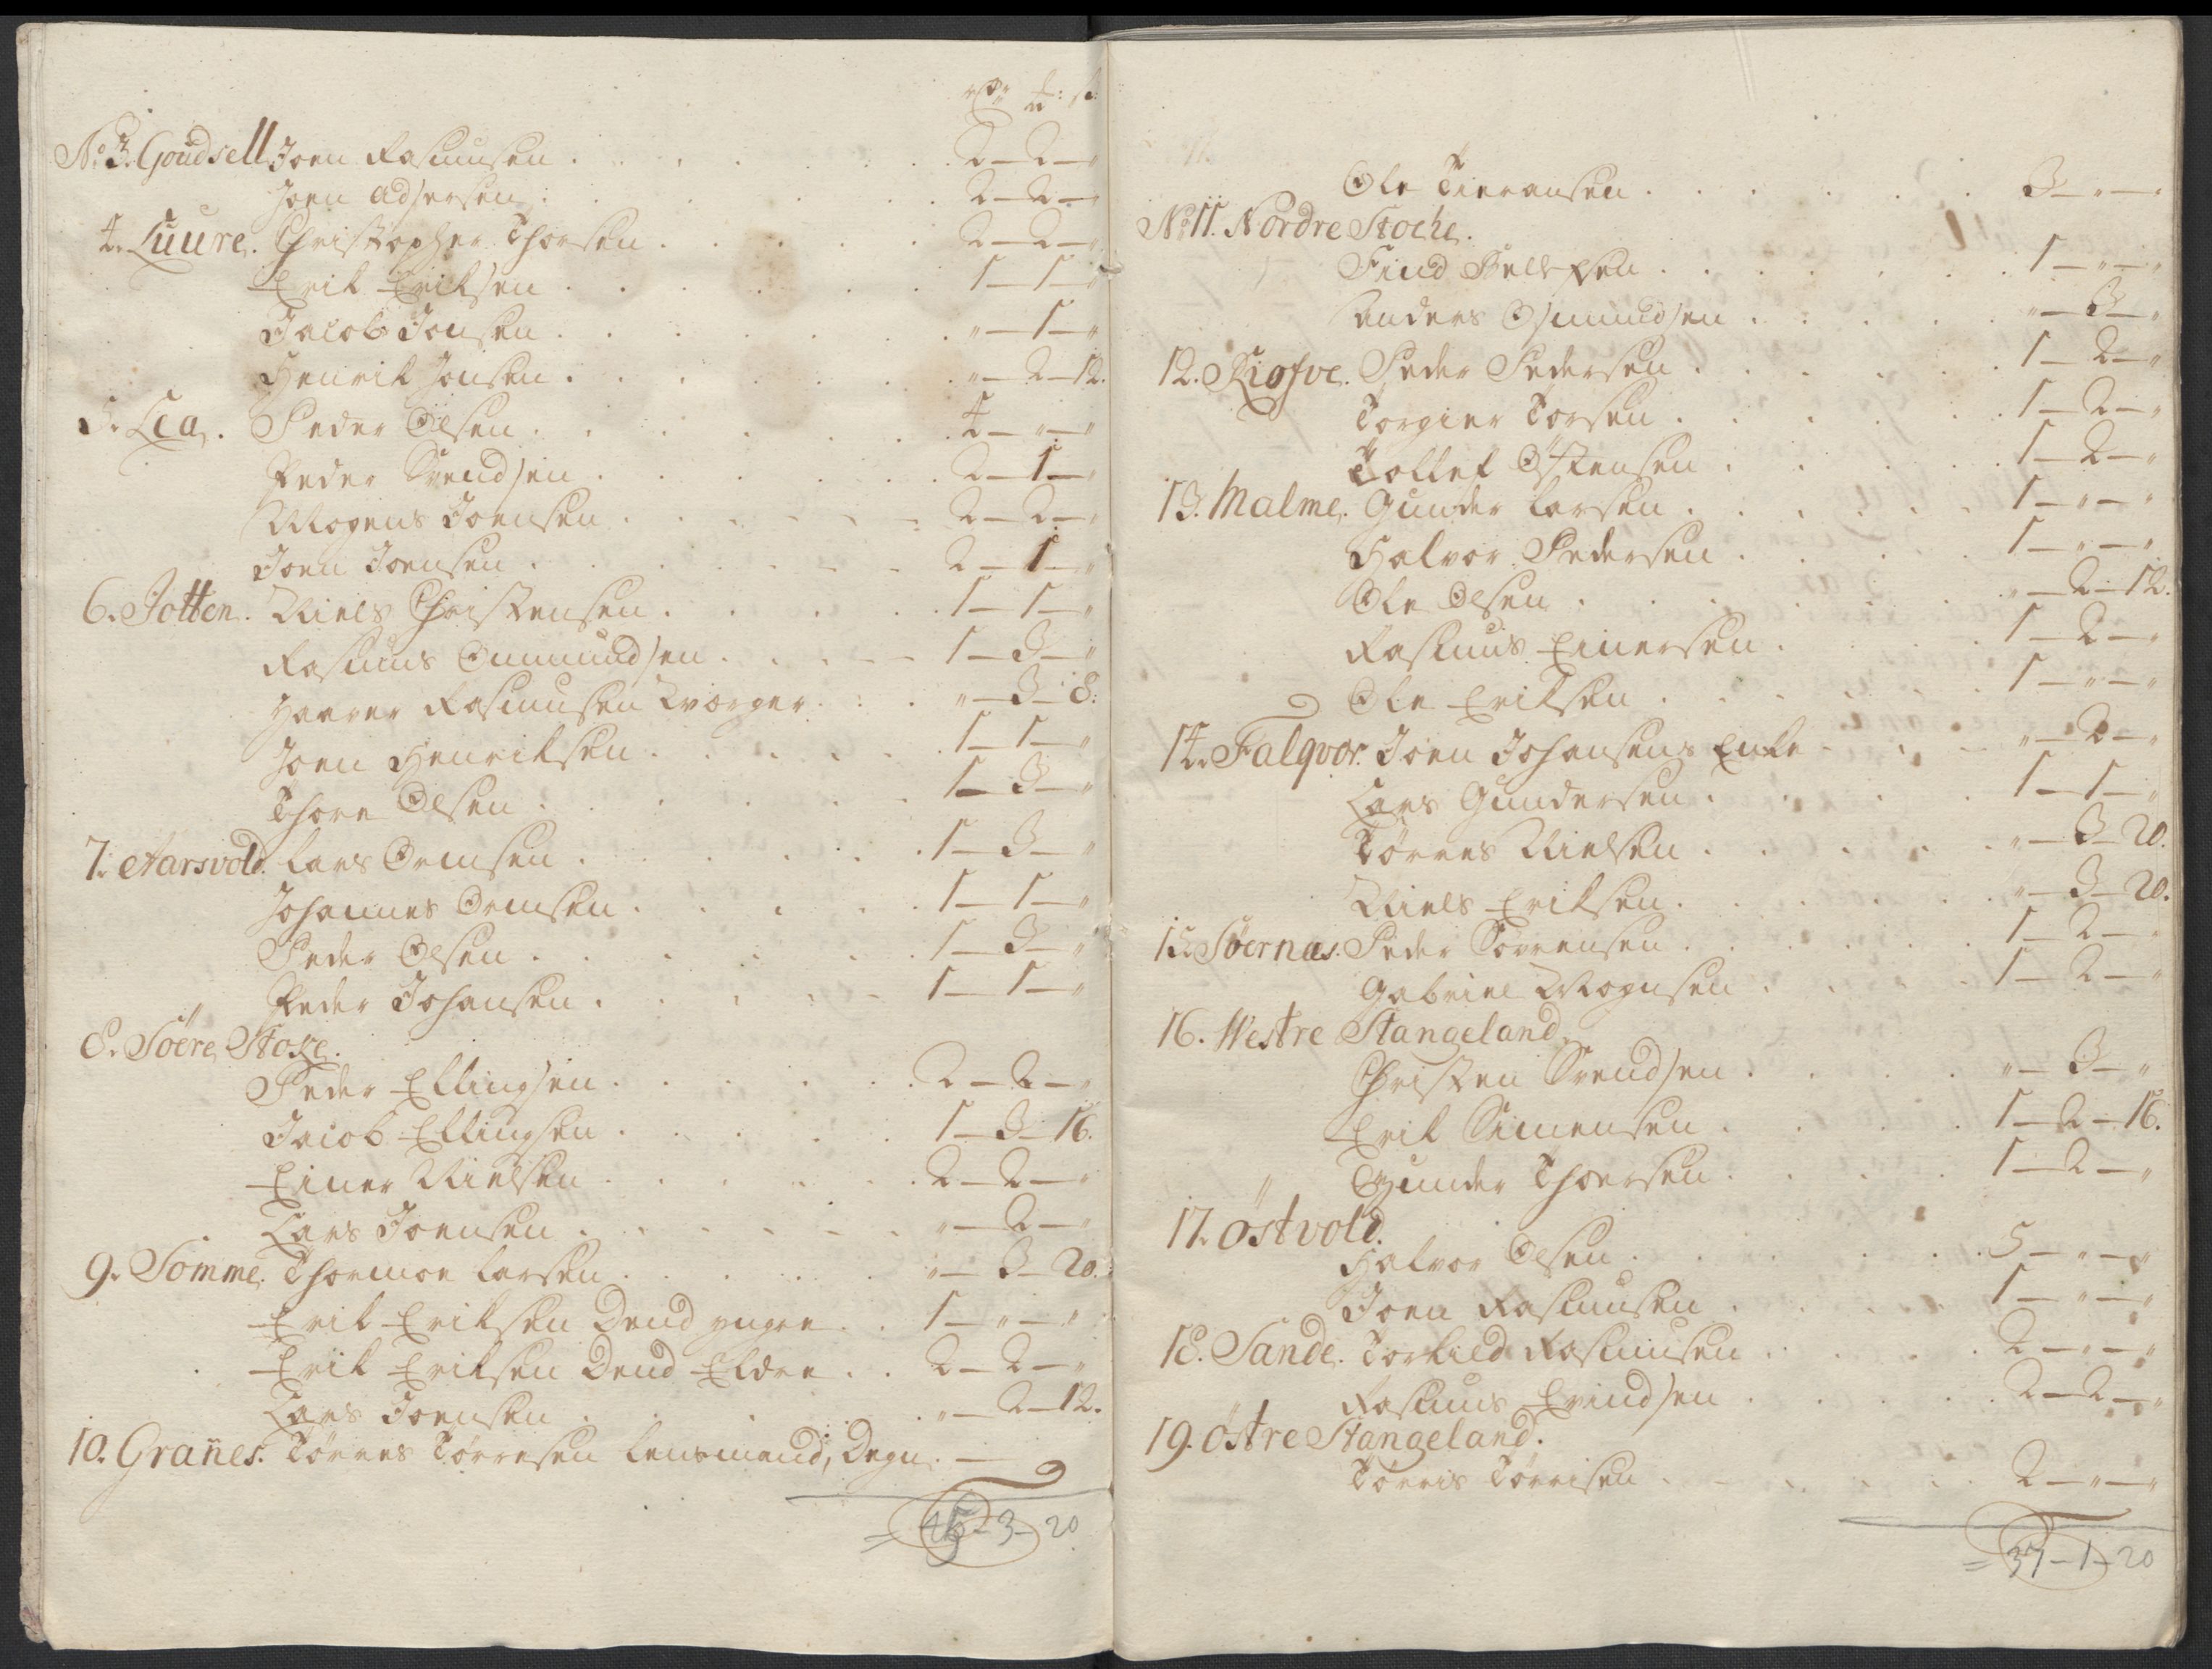 rdr: tt: s:
No 3. Goudsell Joen Rasmusen . . . . . 2 — 2 — "
Joen Adsersen . . . . . 2 — 2 — "
4. Luure. Christopher Thorsen . . . . . 2 — 2 — "
Erik Eriksen . . . . . 1 — 1 — "
Jacob Jonsen . . . . . " — 1 — "
Henrik Jonsen . . . . . " — 2 — 12.
5. Lea. Peder Olsen . . . . . 4 — " — "
Peder Svendsen . . . . . 2 — 1 — "
Mogens Joensen . . . . . 2 — 2 — "
Joen Joensen . . . . . 2 — 1 — "
6. Jotten. Niels Christensen . . . . . 1 — 1 — "
Rasmus Ommundsen . . . . . 1 — 3 — "
Haaver Rasmusen . . . " — 3 — 8:
Joen Henriksen . . . . . 1 — 1 — "
Thore Olsen . . . . . 1 — 3 — "
7. Aarsvold. Lars Ormsen . . . . . 1 — 3 — "
Johannes Ormsen . . . . . 1 — 1 — "
Peder Olsen . . . . . 1 — 3 — "
Peder Johansen . . . . . 1 — 1 — "
8. Söere Stoke.
Peder Ellingsen . . . . . 2 — 2 — "
Jacob Ellingsen . . . . . 1 — 3 — 16.
Einer Nielsen . . . . . 2 — 2 — "
Lars Joensen . . . . . " — 2 — "
9. Somme. Thormoe Larsen . . . . . " — 3 — 20.
Erik Eriksen Dend yngre . . 1 — " — "
Erik Eriksen Dend Eldre . . 2 — 2 — "
Lars Joensen . . . . . " — 2 — 12.
10. Grañes. Törres Törresen Lensmand, Degn. —
= 45 — 3 — 20
Ole . . . . . 3 — " — "
No 11. Nordre Stocke.
Find . . . . . 1 — " — "
Anders Osmundsen . . . . . " — 3 — "
12. Kiosve. Peder Pedersen . . . . . 1 — 2 — "
Torgier Torsen . . . . . 1 — 2 — "
Tollef Östensen . . . . . 1 — 2 — "
13. Malme. Gunder Larsen . . . . . 1 — " — "
Halvor Pedersen . . . . . 1 — " — "
Ole Olsen . . . . . " — 2 — 12.
Rasmus Einersen . . . . . 1 — 2 — "
Ole Eriksen . . . . . 1 — " — "
14. Falqvor. Joen Johansens Enke . . . " — 2 — "
Lars Gundersen . . . . . 1 — 1 — "
Törres Nielsen . . . . . " — 3 — 20.
Niels Eriksen . . . . . " — 3 — 20.
15. Söernæs. Peder Sörrensen . . . . . 1 — 2 — "
Gabriel Mognsen . . . . . 1 — 2 — "
16. Westre Stangeland
Christen Svendsen . . . . . " — 3 — "
Erik Simensen . . . . . 1 — 2 — 16.
Gunder Thoersen . . . . . 1 — 2 — "
17. Östvold.
Halvor Olsen . . . . . 5 — " — "
Joen Rasmusen . . . . . 1 — " — "
18. Sande. Torkild Rasmusen . . . . . 2 — " — "
Rasmus Evindsen . . . . . 2 — 2 — "
19. Östre Stangeland.
Törris Törrisen . . . . . 2 — " — "
= 37 — 1 — 20